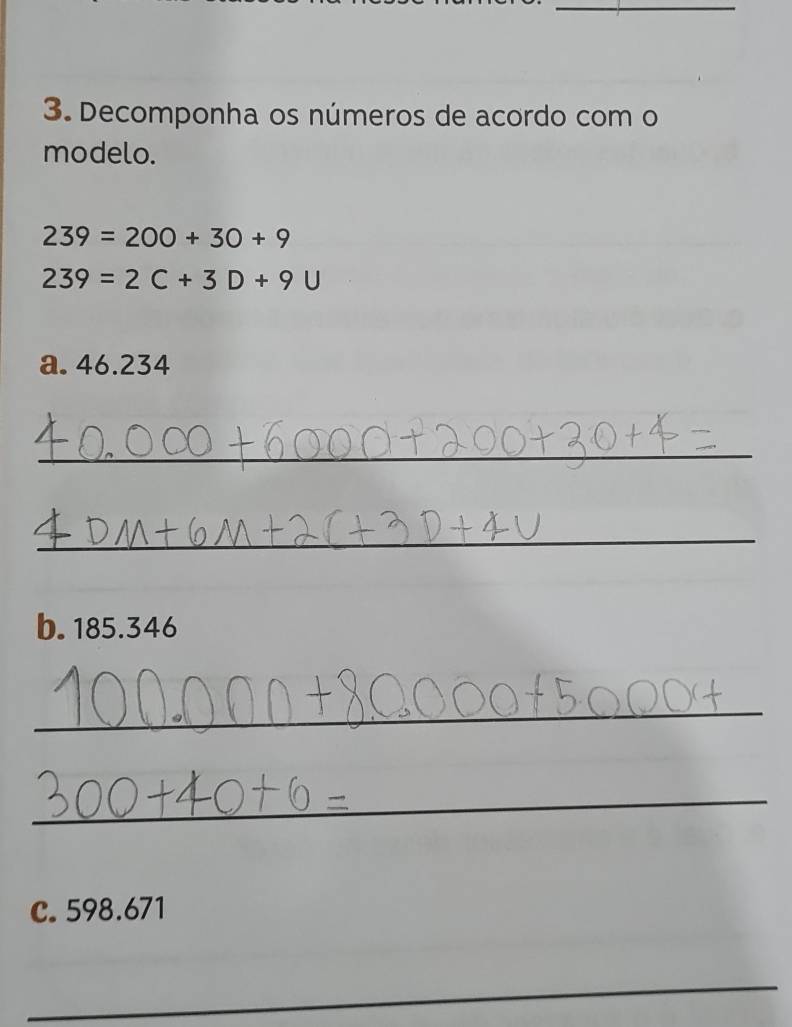 3. Decomponha os números de acordo com o
modelo.
239 = 200 + 30 + 9
239 = 2 C + 3 D + 9 U
a. 46.234
40.000+6000+200+30+4=
4DM+6M+2C+3D+4U
b. 185.346
100.000+80.000+5000+
300+40+6=
c. 598.671